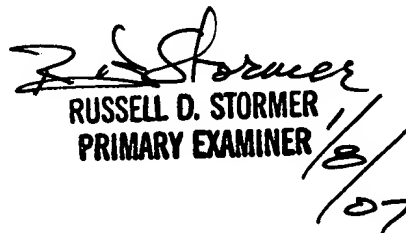 R. D. Stormer
RUSSELL D. STORMER
PRIMARY EXAMINER 1/8/07